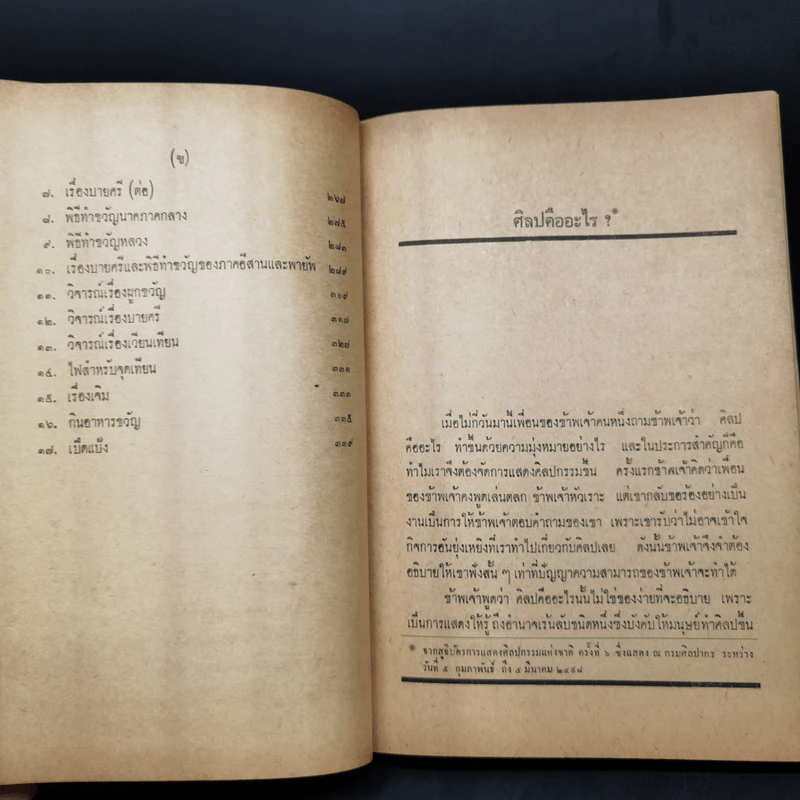 (ข)
๗. เรื่องบายศรี (ต่อ) ๒๖๗
๘. พิธีทำขวัญนาคภาคกลาง ๒๗๕
๙. พิธีทำขวัญหลวง ๒๘๓
๑๐. เรื่องบายศรีและพิธีทำขวัญของภาคอีสานและพายัพ ๒๘๙
๑๑. วิจารณ์เรื่องผูกขวัญ ๓๐๙
๑๒. วิจารณ์เรื่องบายศรี ๓๑๗
๑๓. วิจารณ์เรื่องเวียนเทียน ๓๒๗
๑๔. ไฟสำหรับจุดเทียน ๓๓๑
๑๕. เรื่องเจิม ๓๓๑
๑๖. กินอาหารขวัญ ๓๓๕
๑๗. เบ็ดแบ็ง ๓๓๙
ศิลปคืออะไร ?*
เมื่อไม่กี่วันมานี้เพื่อนของข้าพเจ้าคนหนึ่งถามข้าพเจ้าว่า ศิลป
คืออะไร ทำขึ้นด้วยความมุ่งหมายอย่างไร และในประการสำคัญก็คือ
ทำไมเราจึงต้องจัดการแสดงศิลปกรรมขึ้น ครั้งแรกข้าพเจ้าคิดว่าเพื่อน
ของข้าพเจ้าคงพูดเล่นตลก ข้าพเจ้าหัวเราะ แต่เขากลับขอร้องอย่างเป็น
งานเป็นการให้ข้าพเจ้าตอบคำถามของเขา เพราะเขารับว่าไม่อาจเข้าใจ
กิจการอันยุ่งเหยิงที่เราทำไปเกี่ยวกับศิลปเลย ดังนั้นข้าพเจ้าจึงจำต้อง
อธิบายให้เขาฟังสั้น ๆ เท่าที่ปัญญาความสามารถของข้าพเจ้าจะทำได้
ข้าพเจ้าพูดว่า ศิลปคืออะไรนั้นไม่ใช่ของง่ายที่จะอธิบาย เพราะ
เป็นการแสดงให้รู้ ถึงอำนาจเร้นลับชนิดหนึ่งซึ่งบังคับให้มนุษย์ทำศิลปขึ้น
* จากสูจิบัตรการแสดงศิลปกรรมแห่งชาติ ครั้งที่ ๖ ซึ่งแสดง ณ กรมศิลปากร ระหว่าง
วันที่ ๕ กุมภาพันธ์ ถึง ๕ มีนาคม ๒๔๙๘